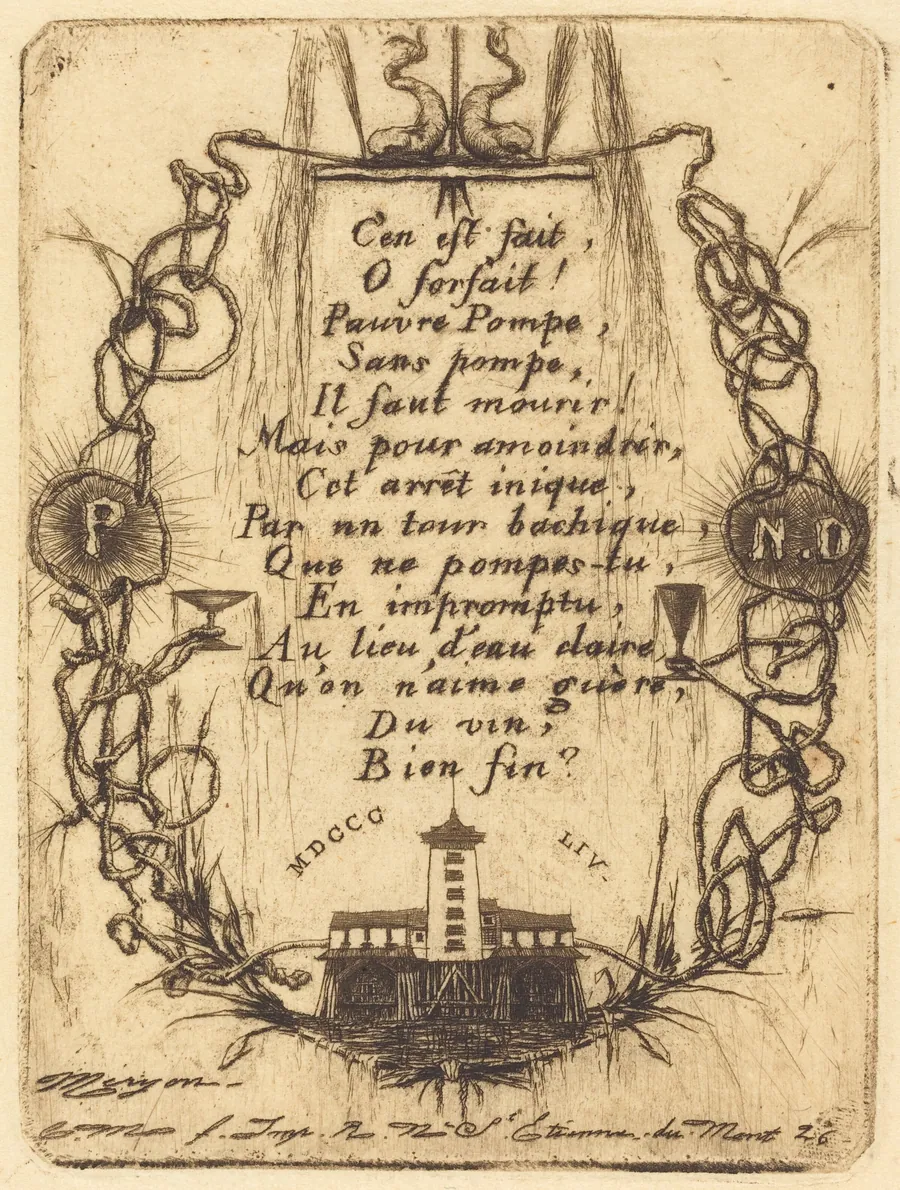 C'en est fait,
O forfait!
Pauvre Pompe,
Sans pompe,
Il faut mourir!
Mais pour amoindrir,
Cet arrêt inique,
Par un tour bachique,
Que ne pompes-tu,
En impromptu,
Au lieu d'eau claire,
Qu'on n'aime guère,
Du vin,
Bien fin?
P
N.D
MDCCC LIV.
Meryon
C. M. f. Imp. R. N. St Etienne-du-Mont 26